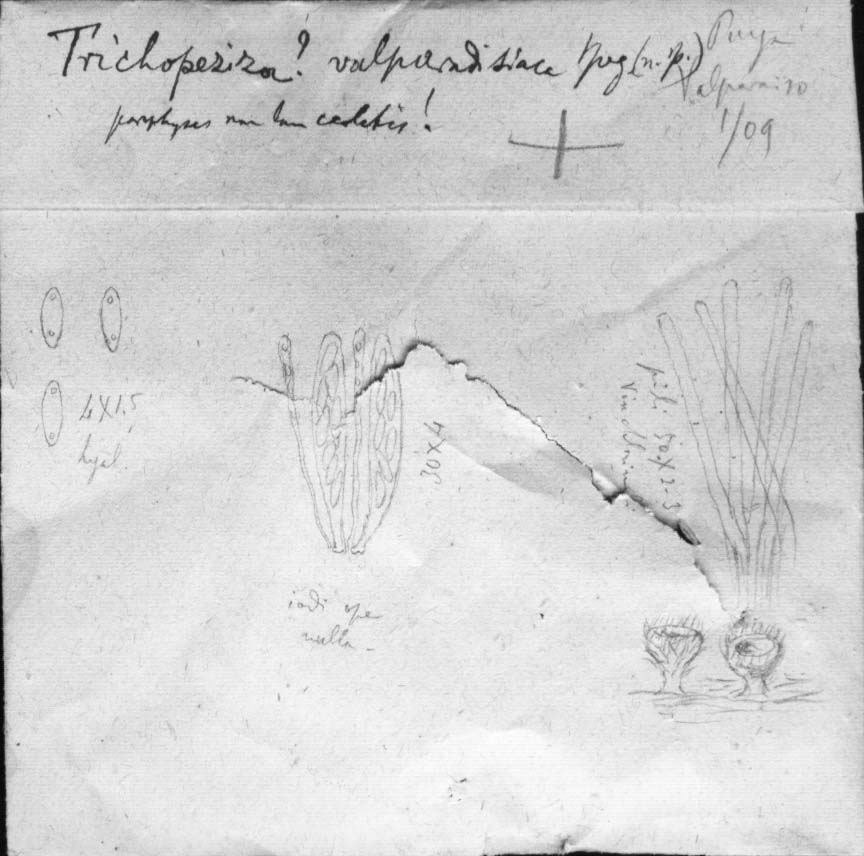 Trichopeziza? valparadisiaca Speg (n. sp.)
Puya
Valparaiso
1/09
paraphyses non lanceolatis!
4X1.5
hyal.
30X4
pili 50X2-3
iodi ope
nulla -